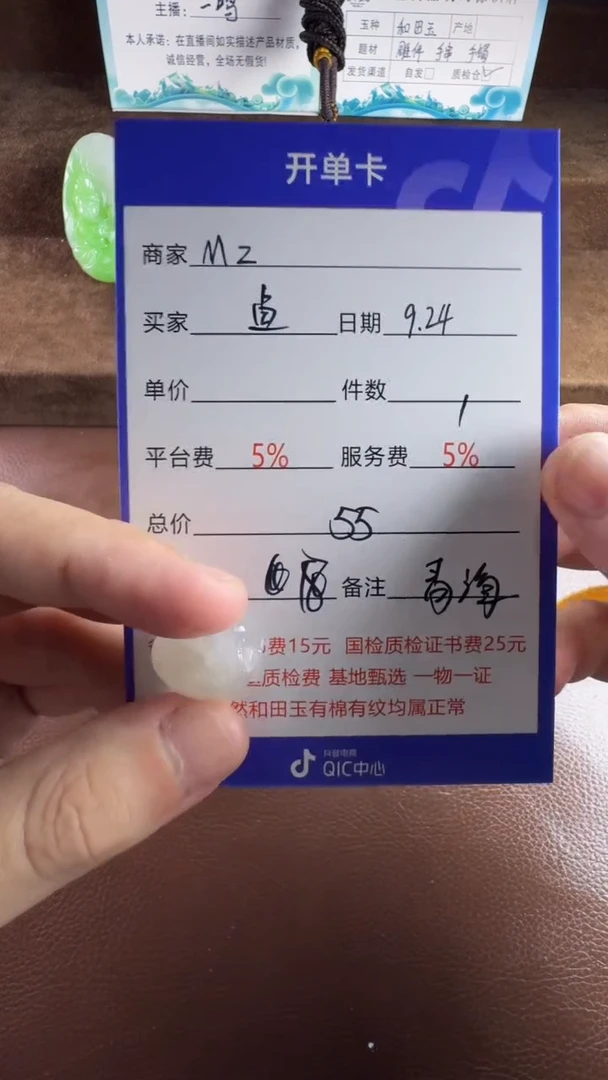 主播: 一鸣
本人承诺: 在直播间如实描述产品材质,
诚信经营, 全场无假货!
玉种 和田玉 产地
题材
发货渠道 自发□ 质检仓✓
开单卡
商家 MZ
买家 卤 日期 9.24
单价 件数 1
平台费 5% 服务费 5%
总价 55
备注 青海
费15元 国检质检证书费25元
质检费 基地甄选 一物一证
然和田玉有棉有纹均属正常
抖音电商
QIC中心